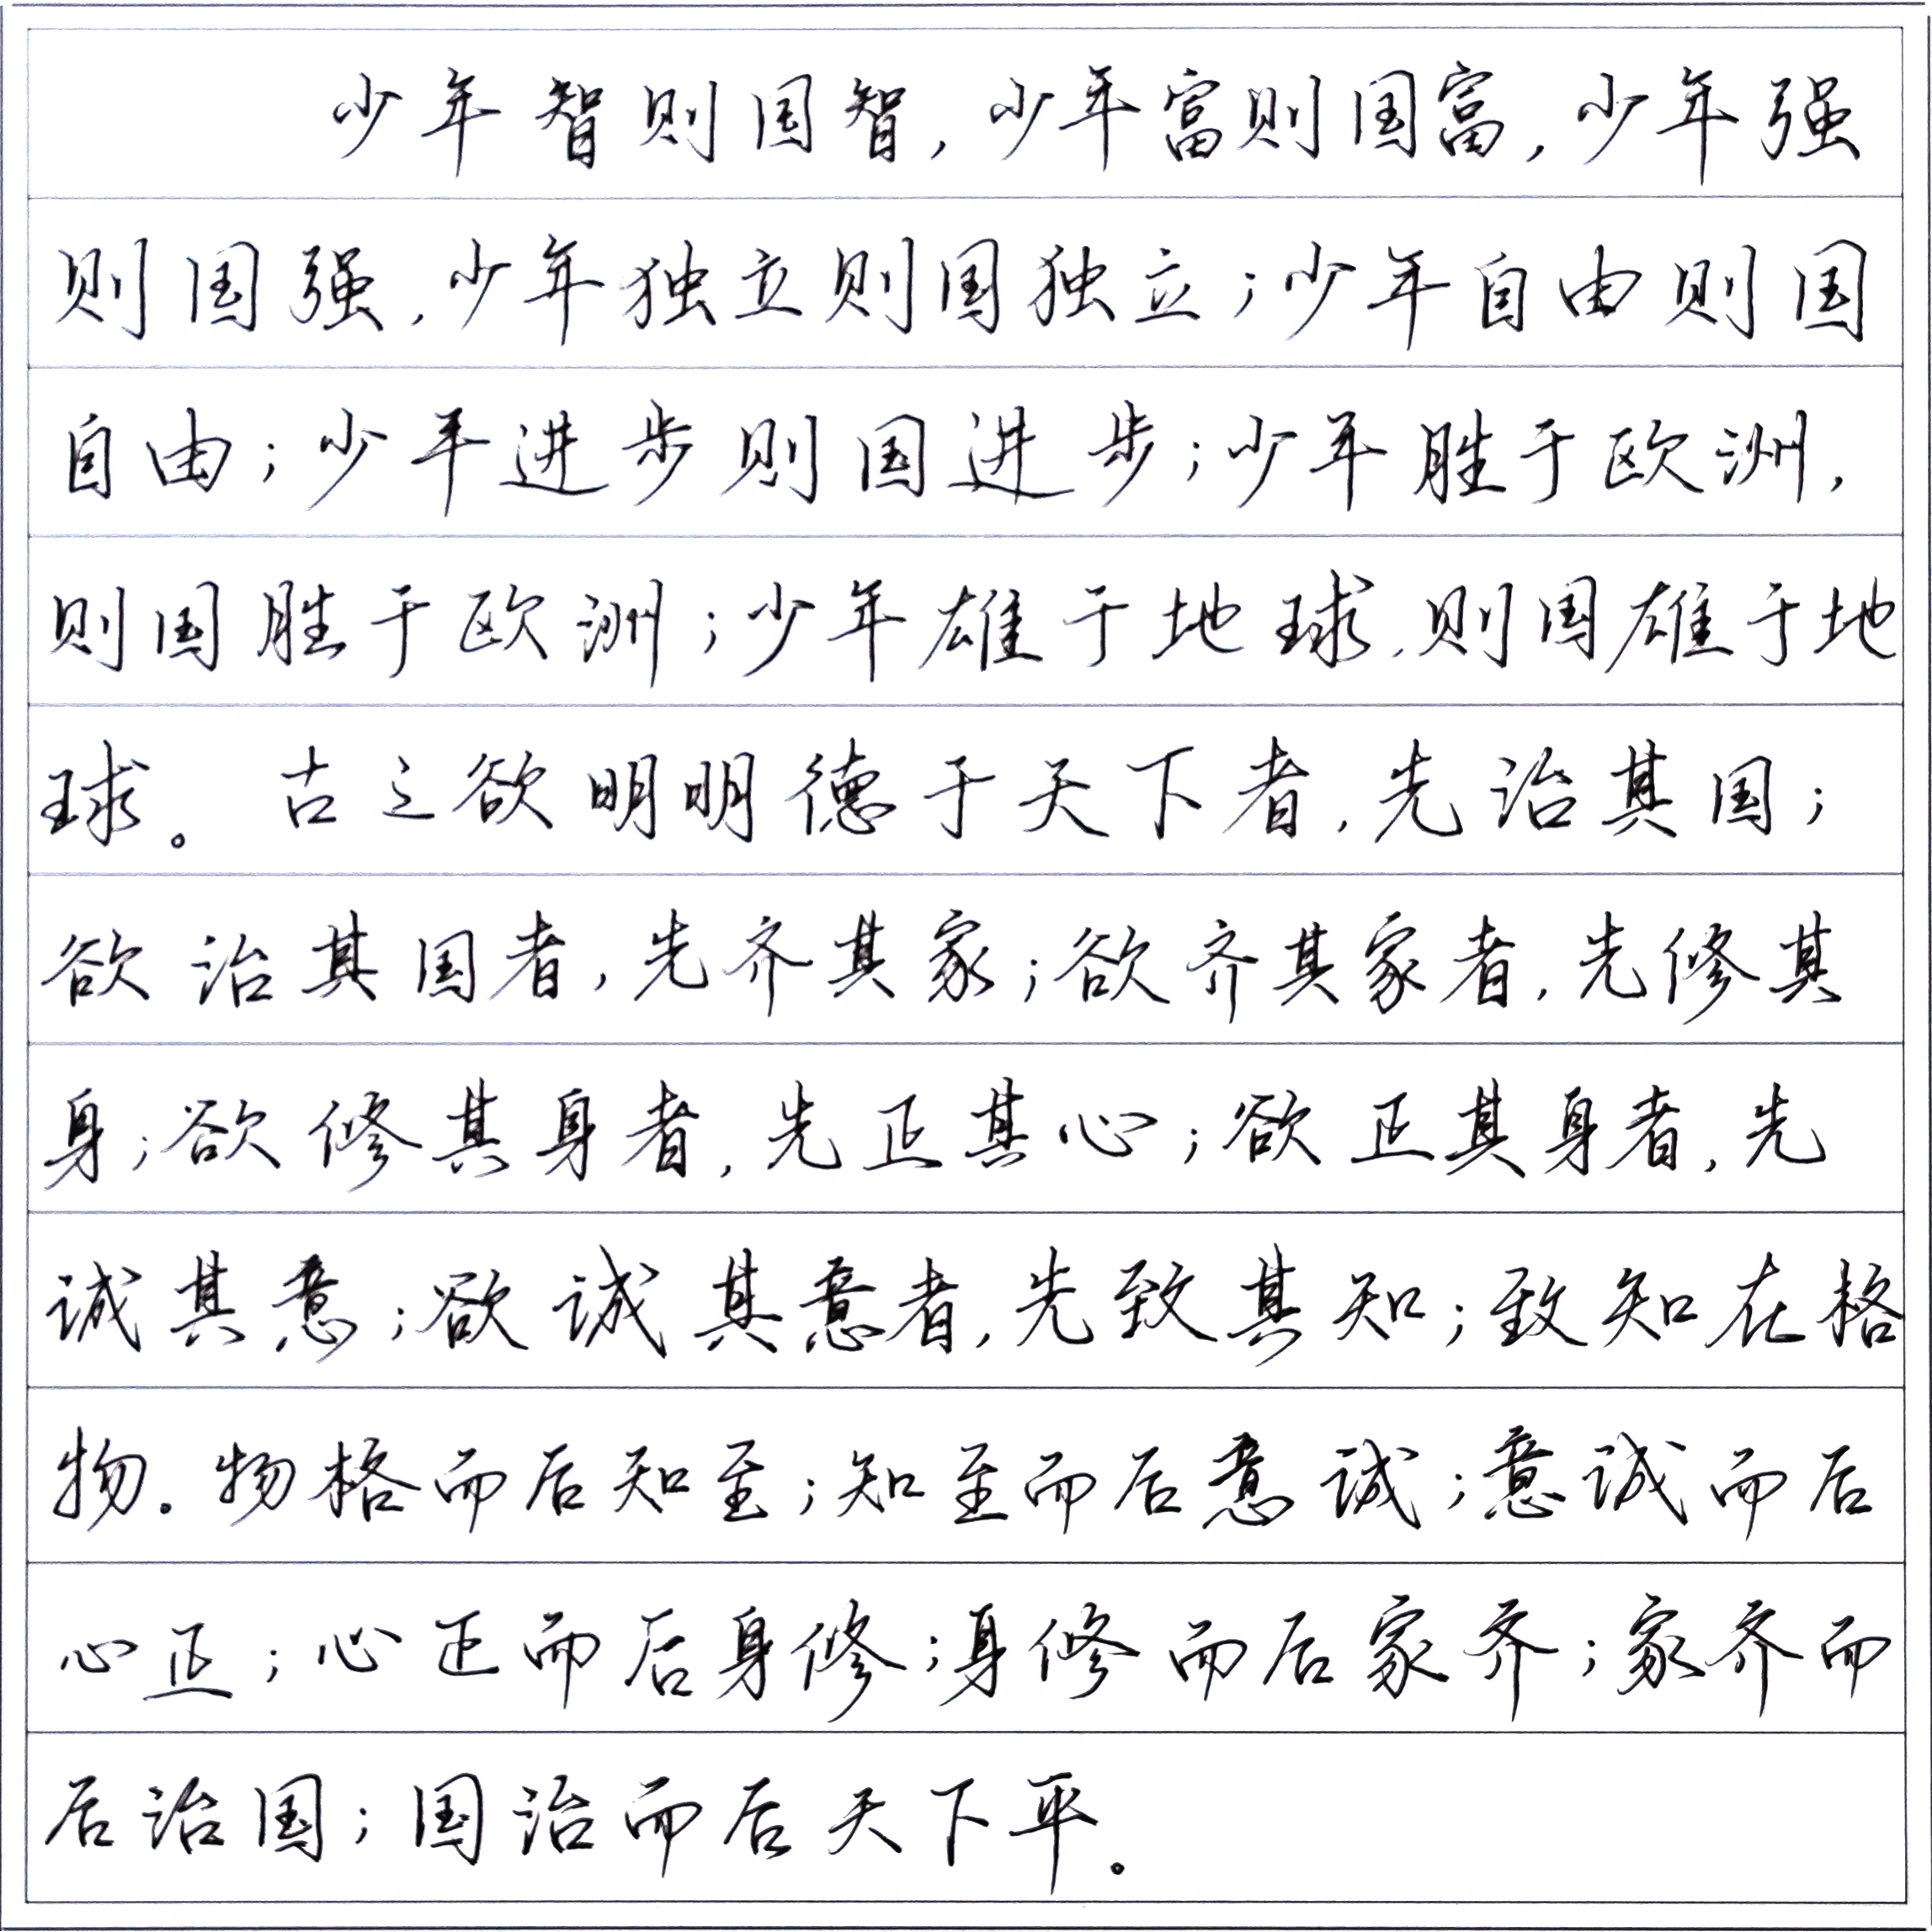 少年智则国智,少年富则国富,少年强
则国强,少年独立则国独立;少年自由则国
自由;少年进步则国进步;少年胜于欧洲,
则国胜于欧洲;少年雄于地球,则国雄于地
球。古之欲明明德于天下者,先治其国;
欲治其国者,先齐其家;欲齐其家者,先修其
身;欲修其身者,先正其心;欲正其身者,先
诚其意;欲诚其意者,先致其知;致知在格
物。物格而后知至;知至而后意诚;意诚而后
心正;心正而后身修;身修而后家齐;家齐而
后治国;国治而后天下平。